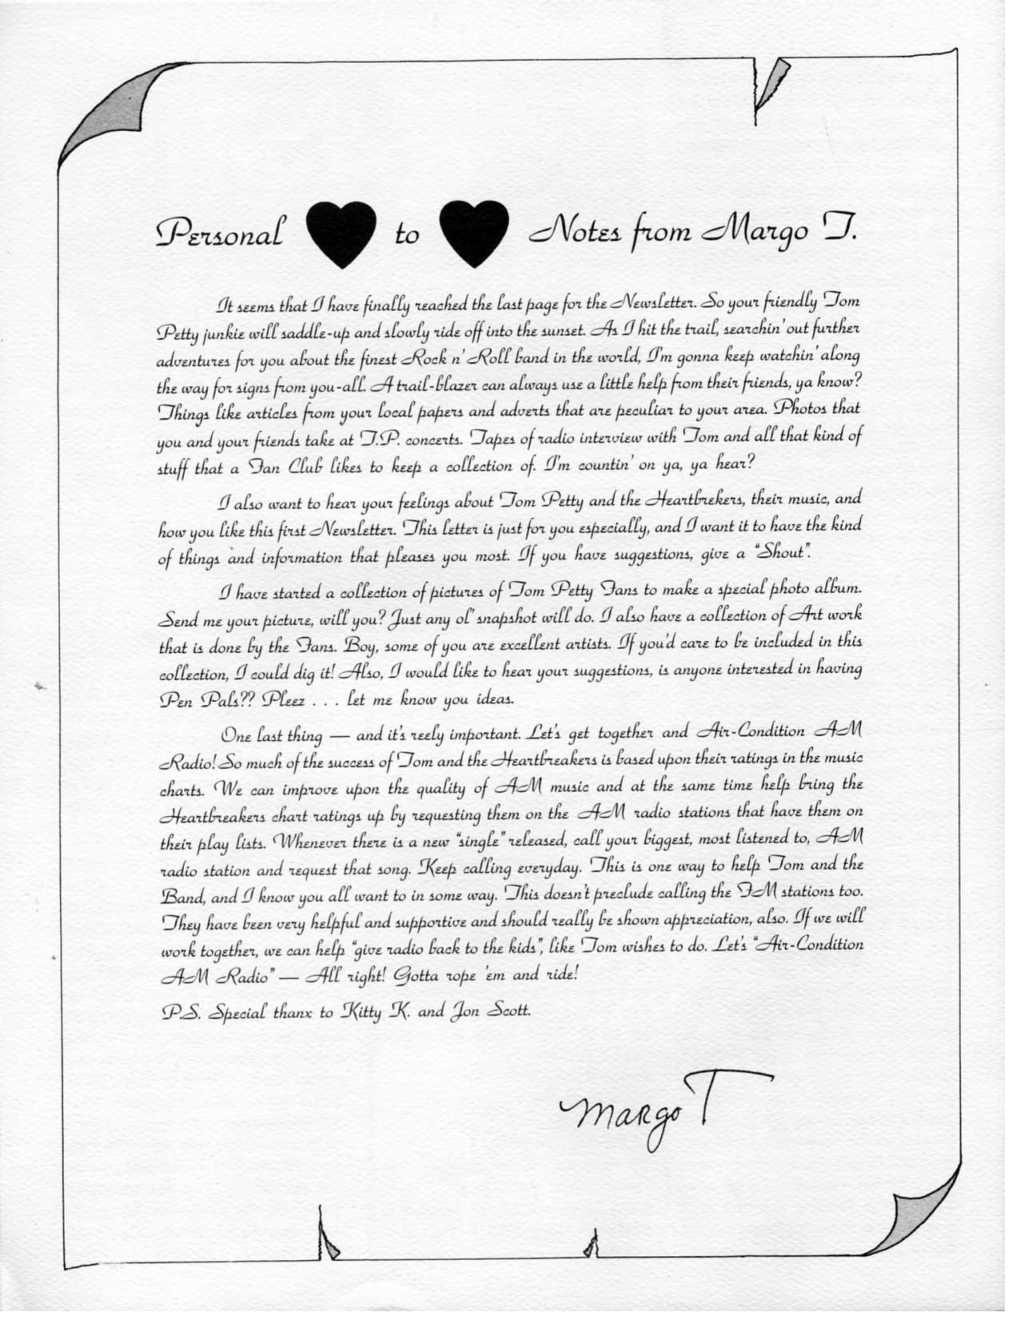 Personal ♥ to ♥ Notes from Margo T.
It seems that I have finally reached the last page for the Newsletter. So your friendly Tom
Petty junkie will saddle-up and slowly ride off into the sunset. As I hit the trail, searchin' out further
adventures for you about the finest Rock n' Roll band in the world, I'm gonna keep watchin' along
the way for signs from you-all. A trail-blazer can always use a little help from their friends, ya know?
Things like articles from your local papers and adverts that are peculiar to your area. Photos that
you and your friends take at T.P. concerts. Tapes of radio interview with Tom and all that kind of
stuff that a Fan Club likes to keep a collection of. I'm countin' on ya, ya hear?
I also want to hear your feelings about Tom Petty and the Heartbrekers, their music, and
how you like this first Newsletter. This letter is just for you especially, and I want it to have the kind
of things and information that pleases you most. If you have suggestions, give a "Shout".
I have started a collection of pictures of Tom Petty Fans to make a special photo album.
Send me your picture, will you? Just any ol' snapshot will do. I also have a collection of Art work
that is done by the Fans. Boy, some of you are excellent artists. If you'd care to be included in this
collection, I could dig it! Also, I would like to hear your suggestions, is anyone interested in having
Pen Pals?? Pleez . . . let me know you ideas.
One last thing — and it's reely important. Let's get together and Air-Condition AM
Radio! So much of the success of Tom and the Heartbreakers is based upon their ratings in the music
charts. We can improve upon the quality of AM music and at the same time help bring the
Heartbreakers chart ratings up by requesting them on the AM radio stations that have them on
their play lists. Whenever there is a new "single" released, call your biggest, most listened to, AM
radio station and request that song. Keep calling everyday. This is one way to help Tom and the
Band, and I know you all want to in some way. This doesn't preclude calling the FM stations too.
They have been very helpful and supportive and should really be shown appreciation, also. If we will
work together, we can help "give radio back to the kids", like Tom wishes to do. Let's "Air-Condition
AM Radio" — All right! Gotta rope 'em and ride!
P.S. Special thanx to Kitty K. and Jon Scott.
Margo T